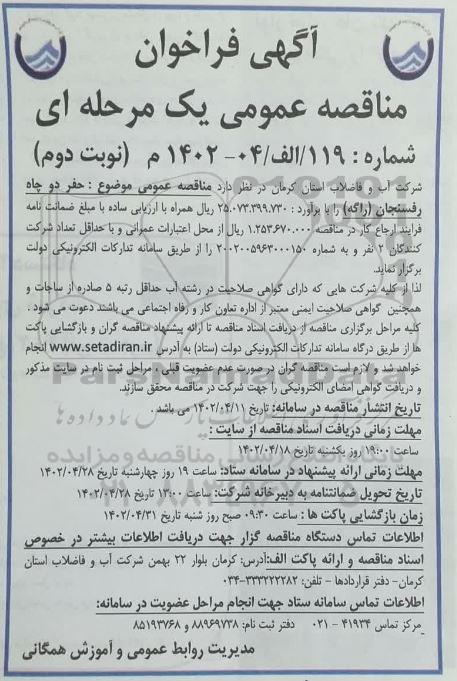 آگهی فراخوان
مناقصه عمومی یک مرحله ای
شماره : ۱۱۹/الف/۰۴- ۱۴۰۲ م (نوبت دوم)
شرکت آب و فاضلاب استان کرمان در نظر دارد مناقصه عمومی موضوع : حفر دو چاه
رفسنجان (راگه) را با برآورد : ۲۵.۰۷۳.۳۹۹.۷۳۰ ریال همراه با ارزیابی ساده با مبلغ ضمانت نامه
فرایند ارجاع کار در مناقصه ۱.۲۵۳.۶۷۰.۰۰۰ ریال از محل اعتبارات عمرانی و با حداقل تعداد شرکت
کنندگان ۲ نفر و به شماره ۲۰۰۲۰۰۵۹۶۳۰۰۰۱۵۰ را از طریق سامانه تدارکات الکترونیکی دولت
برگزار نماید.
لذا از کلیه شرکت هایی که دارای گواهی صلاحیت در رشته آب حداقل رتبه ۵ صادره از ساجات و
همچنین گواهی صلاحیت ایمنی معتبر از اداره تعاون کار و رفاه اجتماعی می باشند دعوت می شود .
کلیه مراحل برگزاری مناقصه از دریافت اسناد مناقصه تا ارائه پیشنهاد مناقصه گران و بازگشایی پاکت
ها از طریق درگاه سامانه تدارکات الکترونیکی دولت (ستاد) به آدرس www.setadiran.ir انجام
خواهد شد و لازم است مناقصه گران در صورت عدم عضویت قبلی ، مراحل ثبت نام در سایت مذکور
و دریافت گواهی امضای الکترونیکی را جهت شرکت در مناقصه محقق سازند.
تاریخ انتشار مناقصه در سامانه: تاریخ ۱۴۰۲/۰۴/۱۱ می باشد .
مهلت زمانی دریافت اسناد مناقصه از سایت :
ساعت ۱۹:۰۰ روز یکشنبه تاریخ ۱۴۰۲/۰۴/۱۸
مهلت زمانی ارائه پیشنهاد در سامانه ستاد: ساعت ۱۹ روز چهارشنبه تاریخ ۱۴۰۲/۰۴/۲۸
تاریخ تحویل ضمانتنامه به دبیرخانه شرکت: ساعت ۱۳:۰۰ تاریخ ۱۴۰۲/۰۴/۲۸
زمان بازگشایی پاکت ها : ساعت ۰۹:۳۰ صبح روز شنبه تاریخ ۱۴۰۲/۰۴/۳۱
اطلاعات تماس دستگاه مناقصه گزار جهت دریافت اطلاعات بیشتر در خصوص
اسناد مناقصه و ارائه پاکت الف:آدرس: کرمان بلوار ۲۲ بهمن شرکت آب و فاضلاب استان
کرمان- دفتر قراردادها - تلفن: ۳۳۳۲۲۲۸۲-۰۳۴
اطلاعات تماس سامانه ستاد جهت انجام مراحل عضویت در سامانه:
مرکز تماس ۴۱۹۳۴ - ۰۲۱ دفتر ثبت نام: ۸۸۹۶۹۷۳۸ و ۸۵۱۹۳۷۶۸
مدیریت روابط عمومی و آموزش همگانی